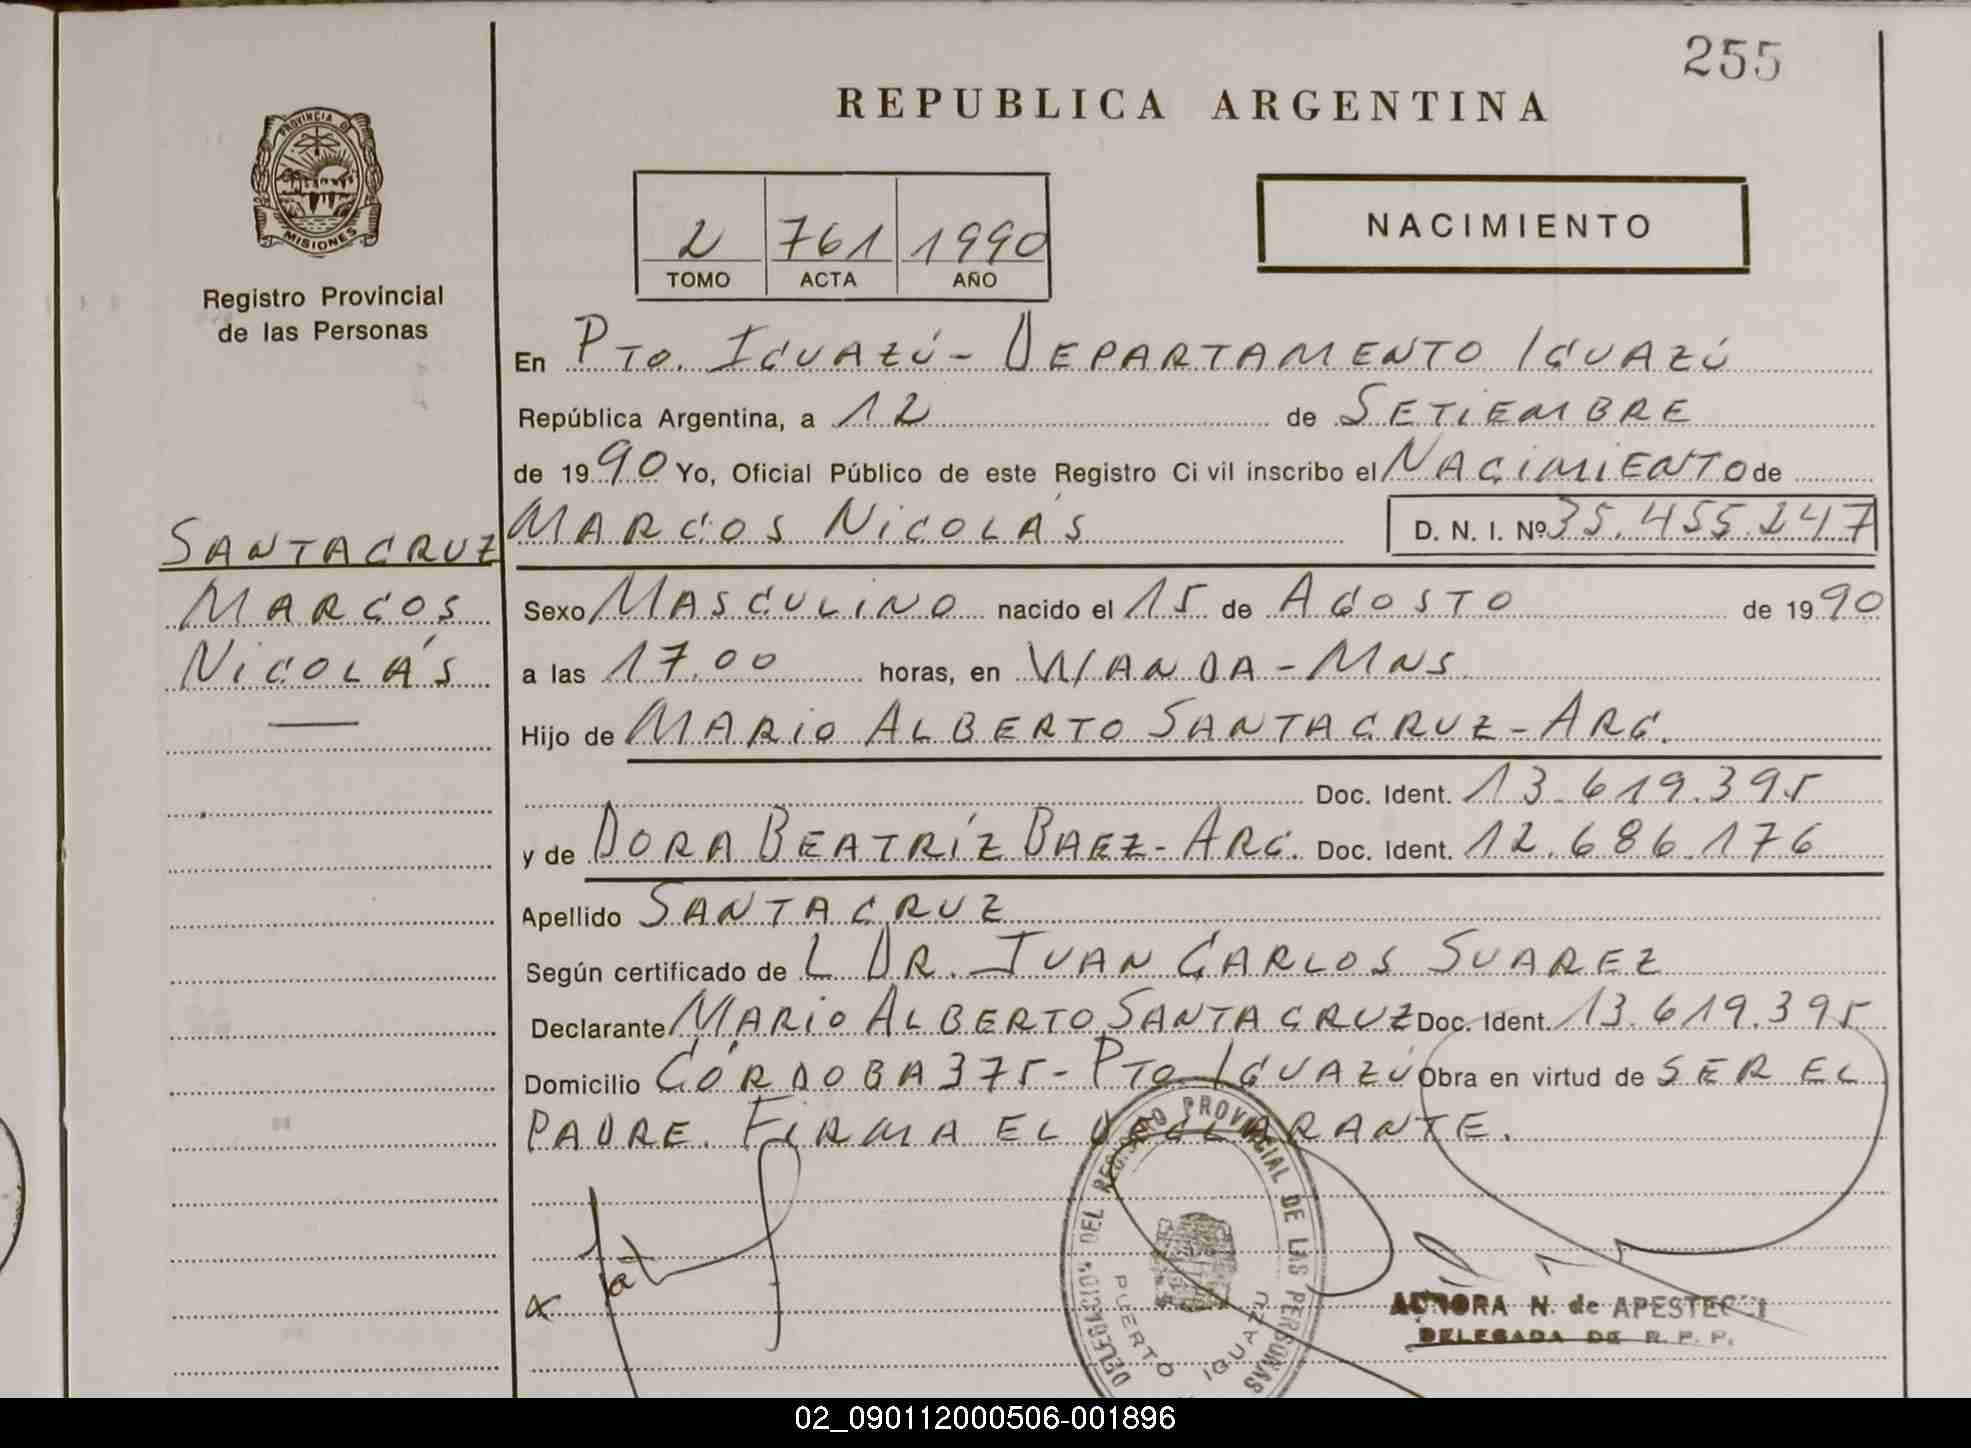 255
REPUBLICA ARGENTINA
PROVINCIA DE
MISIONES
Registro Provincial
de las Personas
2 761 1990
TOMO ACTA AÑO
NACIMIENTO
En PTO. IGUAZÚ - DEPARTAMENTO IGUAZÚ
República Argentina, a 12 de SETIEMBRE
de 1990 Yo, Oficial Público de este Registro Ci vil inscribo el NACIMIENTO de
MARCOS NICOLÁS D. N. I. Nº 35.455.247
SANTACRUZ
MARCOS
NICOLÁS
Sexo MASCULINO nacido el 15 de AGOSTO de 1990
a las 17.00 horas, en WANDA - MNS
Hijo de MARIO ALBERTO SANTACRUZ - ARG.
Doc. Ident. 13.619.395
y de DORA BEATRÍZ BAEZ - ARG. Doc. Ident. 12.686.176
Apellido SANTACRUZ
Según certificado de L DR. JUAN CARLOS SUAREZ
Declarante MARIO ALBERTO SANTACRUZ Doc. Ident. 13.619.395
Domicilio CÓRDOBA 375 - PTO IGUAZÚ Obra en virtud de SER EL
PADRE. FIRMA EL DECLARANTE.
DELEGACION DEL REGISTRO PROVINCIAL DE LAS PERSONAS
PUERTO IGUAZU
AURORA N. de
DELEGADA DE R. P. P.
02_090112000506-001896